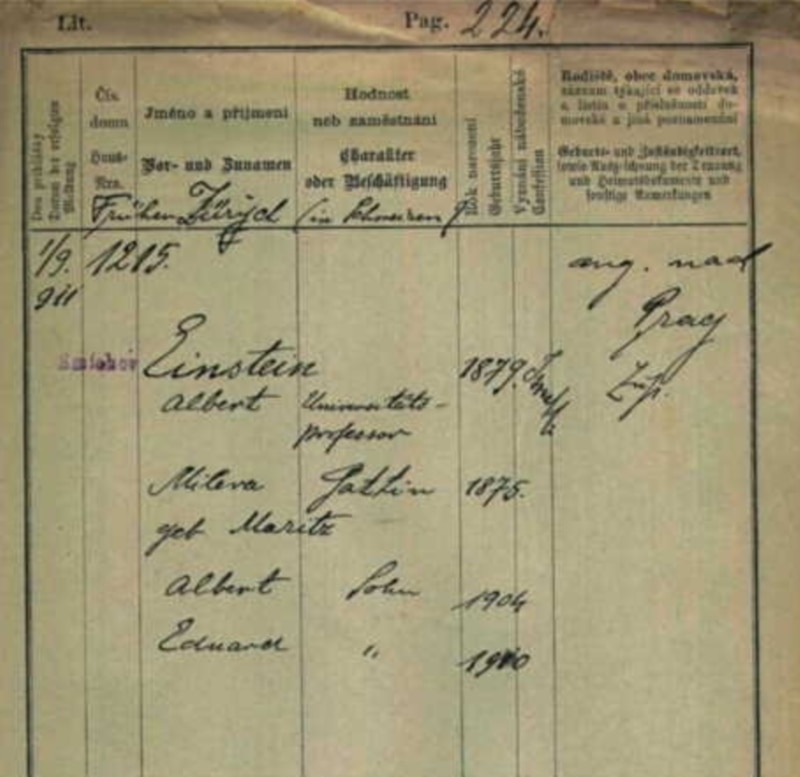 Lit.
Pag. 224.
Čís. domu
Haus-Nro.
Jméno a příjmení
Vor- und Zunamen
Hodnost
neb zaměstnání
Charakter
oder Beschäftigung
Rok narození
Geburtsjahr
Vyznání náboženské
Confession
Rodiště, obec domovská,
záznam týkající se oddavek
a listin o příslušnosti do-
movské a jiná poznamenání
Geburts- und Zuständigkeitsort,
sowie Aufzeichnung der Trauung
und Heimatsdokumente und
sonstige Anmerkungen
Früher Zürich (in Schweizen)
1/9. 1215.
911
nach
Prag
Smíchov Einstein 1879.
Albert Universitäts-
professor
Mileva Gattin 1875.
geb Maritz
Albert Sohn 1904
Eduard " 1910